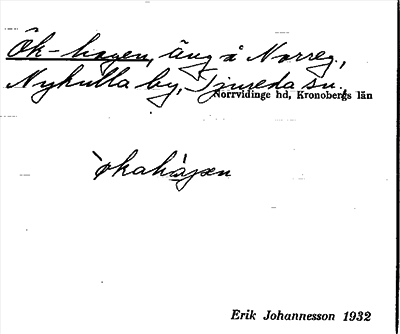 Ök-hagen, äng å Norreg.,
Nykulla by, Tjureda sn.,
Norrvidinge hd, Kronobergs län
`økahàgæn
Erik Johannesson 1932